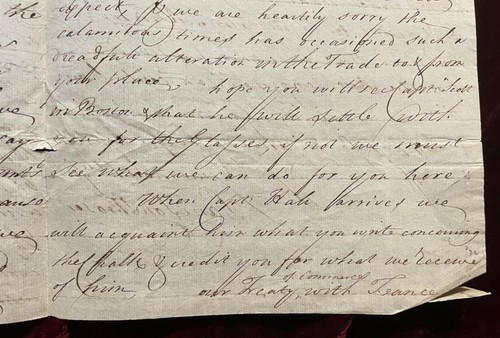 the expect, & we are heartily sorry the
calamitous times has occasioned such a
dreadfull alteration in the Trade to & from
your place, hope you will see Capt Scott
in Boston & that he will settle with
you for the Glasses, if not we must
see what we can do for you here,
When Capt Hale arrives we
will acquaint him what you write concerning
the Chalk & credit you for what we receive
of him, our Treaty of Commerce with France